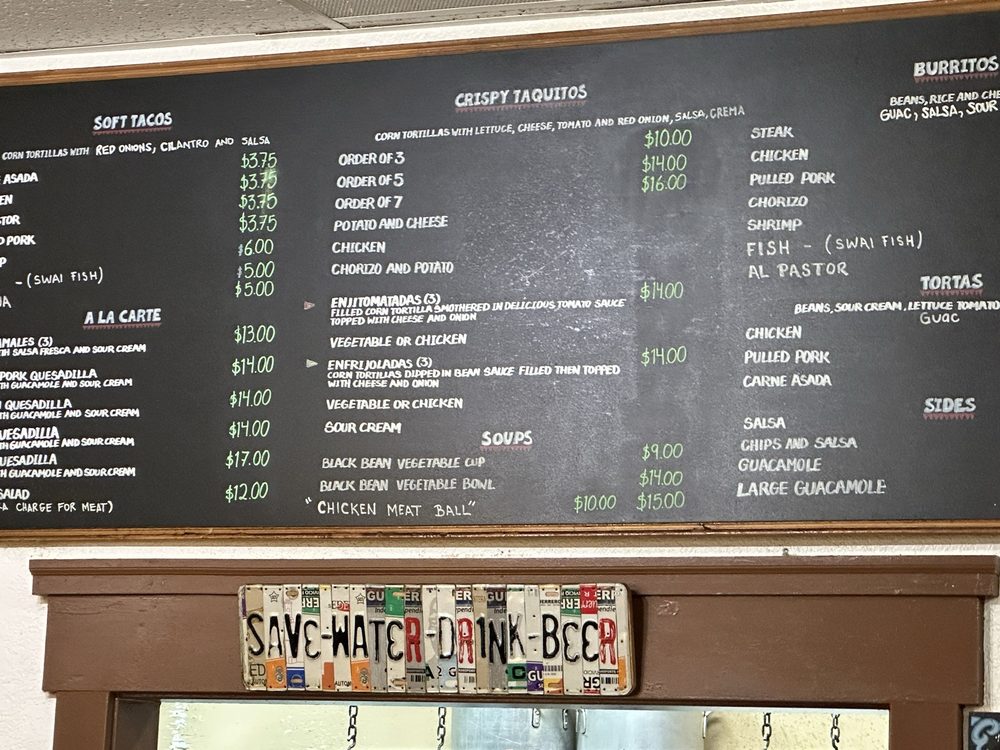 SOFT TACOS
CORN TORTILLAS WITH RED ONIONS, CILANTRO AND SALSA
ASADA $3.75
$3.75
$3.75
PORK $3.75
$6.00
- (SWAI FISH) $5.00
$5.00
A LA CARTE
(3) $13.00
SALSA FRESCA AND SOUR CREAM
PORK QUESADILLA $14.00
GUACAMOLE AND SOUR CREAM
QUESADILLA $14.00
GUACAMOLE AND SOUR CREAM
$14.00
GUACAMOLE AND SOUR CREAM
$17.00
GUACAMOLE AND SOUR CREAM
SALAD $12.00
CHARGE FOR MEAT)
CRISPY TAQUITOS
CORN TORTILLAS WITH LETTUCE, CHEESE, TOMATO AND RED ONION, SALSA, CREMA
ORDER OF 3 $10.00
ORDER OF 5 $14.00
ORDER OF 7 $16.00
POTATO AND CHEESE
CHICKEN
CHORIZO AND POTATO
ENJITOMATADAS (3) $14.00
FILLED CORN TORTILLA SMOTHERED IN DELICIOUS TOMATO SAUCE
TOPPED WITH CHEESE AND ONION
VEGETABLE OR CHICKEN
ENFRIJOLADAS (3) $14.00
CORN TORTILLAS DIPPED IN BEAN SAUCE FILLED THEN TOPPED
WITH CHEESE AND ONION
VEGETABLE OR CHICKEN
SOUR CREAM
SOUPS
BLACK BEAN VEGETABLE CUP $9.00
BLACK BEAN VEGETABLE BOWL $14.00
"CHICKEN MEAT BALL" $10.00 $15.00
BURRITOS
BEANS, RICE AND
GUAC, SALSA, SOUR
STEAK
CHICKEN
PULLED PORK
CHORIZO
SHRIMP
FISH - (SWAI FISH)
AL PASTOR
TORTAS
BEANS, SOUR CREAM, LETTUCE TOMATO
GUAC
CHICKEN
PULLED PORK
CARNE ASADA
SIDES
SALSA
CHIPS AND SALSA
GUACAMOLE
LARGE GUACAMOLE
SAVE-WATER-DR1NK-BEER